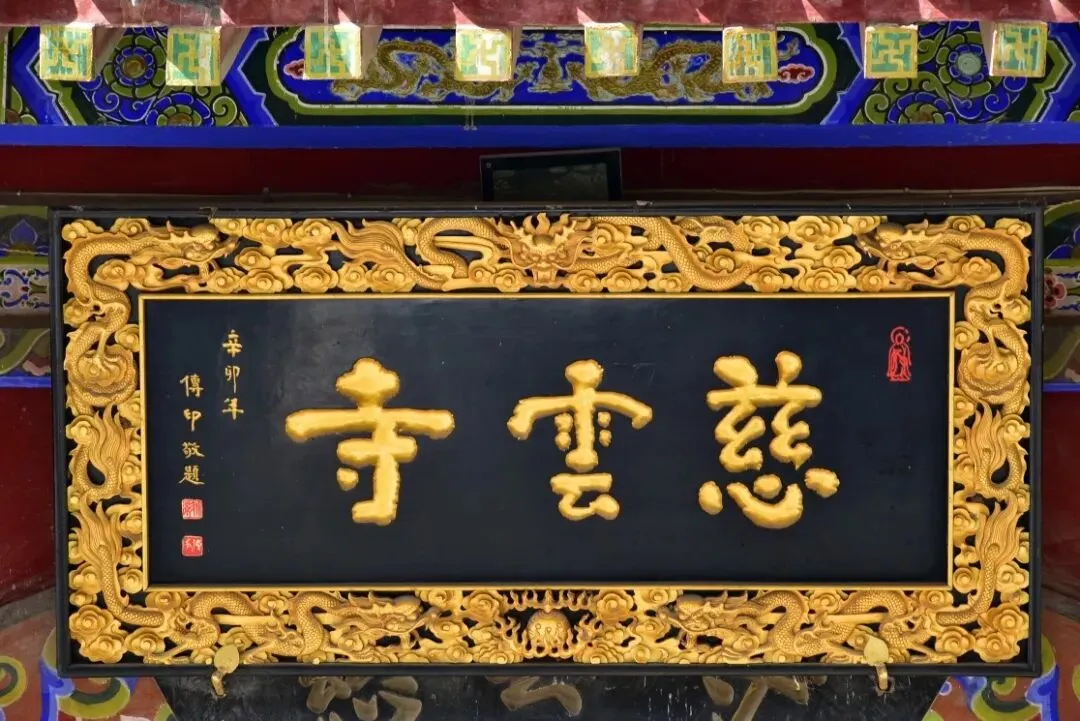 慈雲寺
辛卯年
傳印敬題